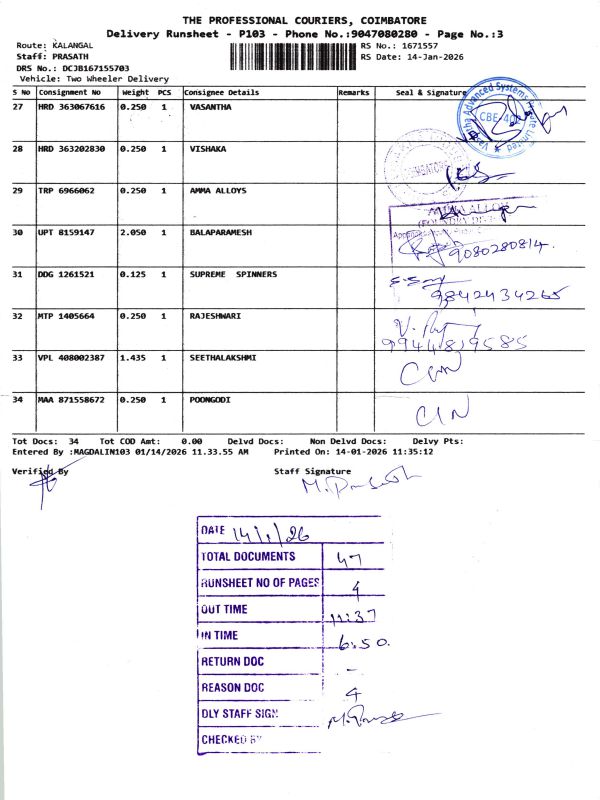 THE PROFESSIONAL COURIERS, COIMBATORE
Delivery Runsheet - P103 - Phone No.:9047080280 - Page No.:3
Route: KALANGAL
RS No.: 1671557
Staff: PRASATH
RS Date: 14-Jan-2026
DRS No.: DCJB167155703
Vehicle: Two Wheeler Delivery
S No Consignment No Weight PCS Consignee Details Remarks Seal & Signature
27 HRD 363067616 0.250 1 VASANTHA
CBE-402
28 HRD 363202830 0.250 1 VISHAKA
29 TRP 6966062 0.250 1 AMMA ALLOYS
30 UPT 8159147 2.050 1 BALAPARAMESH
9080280814.
31 DDG 1261521 0.125 1 SUPREME SPINNERS
9842434265
32 MTP 1405664 0.250 1 RAJESHWARI
9944819585
33 VPL 408002387 1.435 1 SEETHALAKSHMI
34 MAA 871558672 0.250 1 POONGODI
Tot Docs: 34 Tot COD Amt: 0.00 Delvd Docs: Non Delvd Docs: Delvy Pts:
Entered By :MAGDALIN103 01/14/2026 11.33.55 AM Printed On: 14-01-2026 11:35:12
Verified By Staff Signature
DATE 14/1/26
TOTAL DOCUMENTS 47
RUNSHEET NO OF PAGES 4
OUT TIME 11:37
IN TIME 6.50.
RETURN DOC -
REASON DOC 4
DLY STAFF SIGN
CHECKED BY